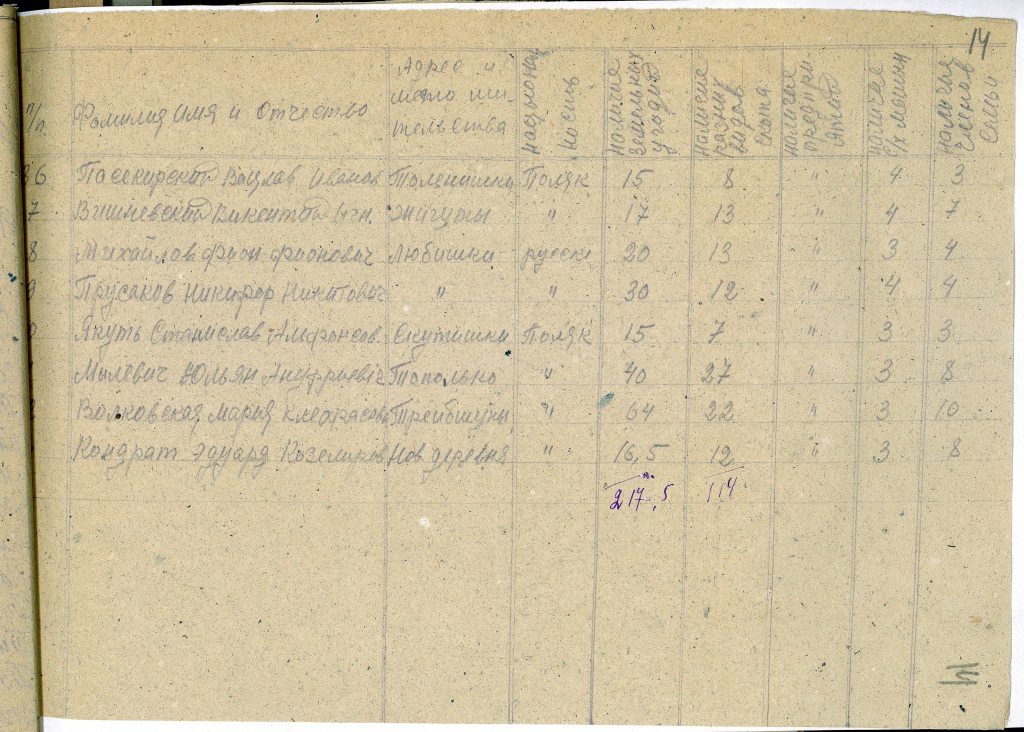 14
п/п. Фамилия имя и Отчество Адрес и место жительства национальность наличие земельных угодий наличие разных видов скота наличие предприятий наличие с/х машин наличие членов семьи
6 Вацлав Иванов Поляк 15 8 " 4 3
7 Вишневский Викентий " 17 13 " 4 7
8 Михайлов Фион Фионович Любишки русски 20 13 " 3 4
9 Прусаков Никифор Никитович " " 30 12 " 4 4
0 Якуть Станислав Альфонсов. Екутишки Поляк 15 7 " 3 3
Милевич Юльян Ануфриевич Тополько " 40 27 " 3 8
Волковская Мария " 64 22 " 3 10
Кондрат Эдуард Каземиров Нов деревня " 16,5 12 " 3 8
217,5 114